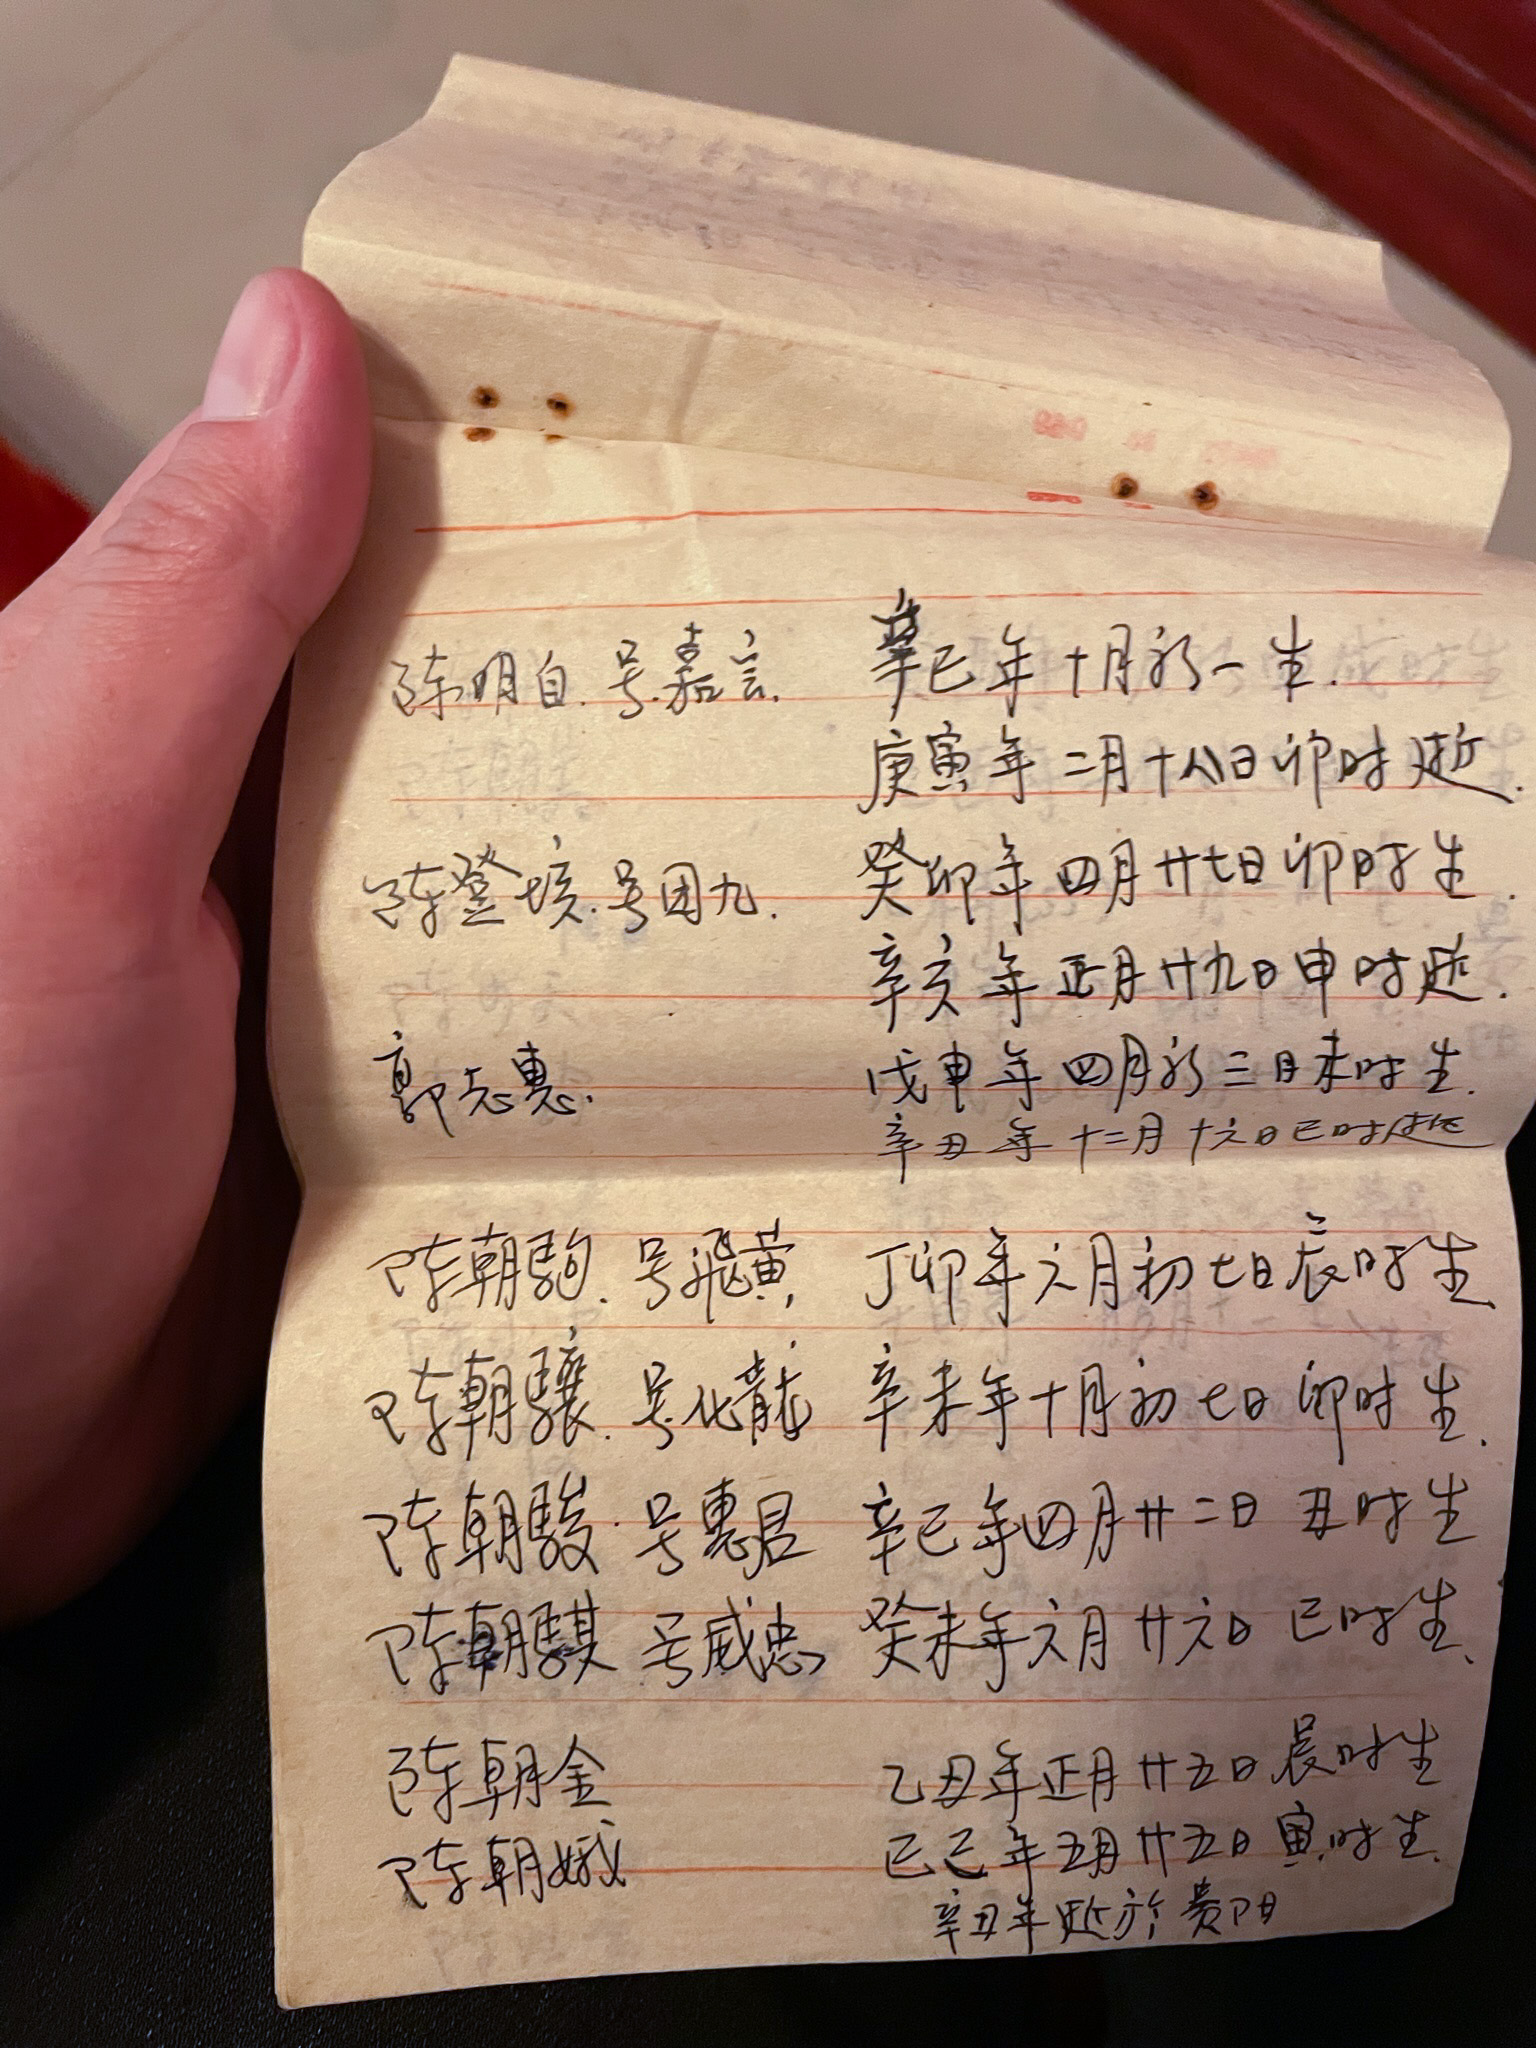 陈明自.号嘉言. 辛巳年十月初一生.
庚寅年二月十八日卯时逝.
陈登 号团九. 癸卯年四月廿七日卯时生.
辛亥年正月廿九日申时逝.
郭志惠. 戊申年四月初三日未时生.
辛丑年十二月十六日巳时逝
陈朝驹.号飛黄, 丁卯年六月初七日辰时生.
陈朝驤.号化龍 辛未年十月初七日卯时生.
陈朝駿.号惠君 辛巳年四月廿二日丑时生
陈朝騏 号威忠 癸未年六月廿六日巳时生.
陈朝金 乙丑年正月廿五日晨时生
陈朝娥 己巳年五月廿五日寅时生.
辛丑年逝於贵阳